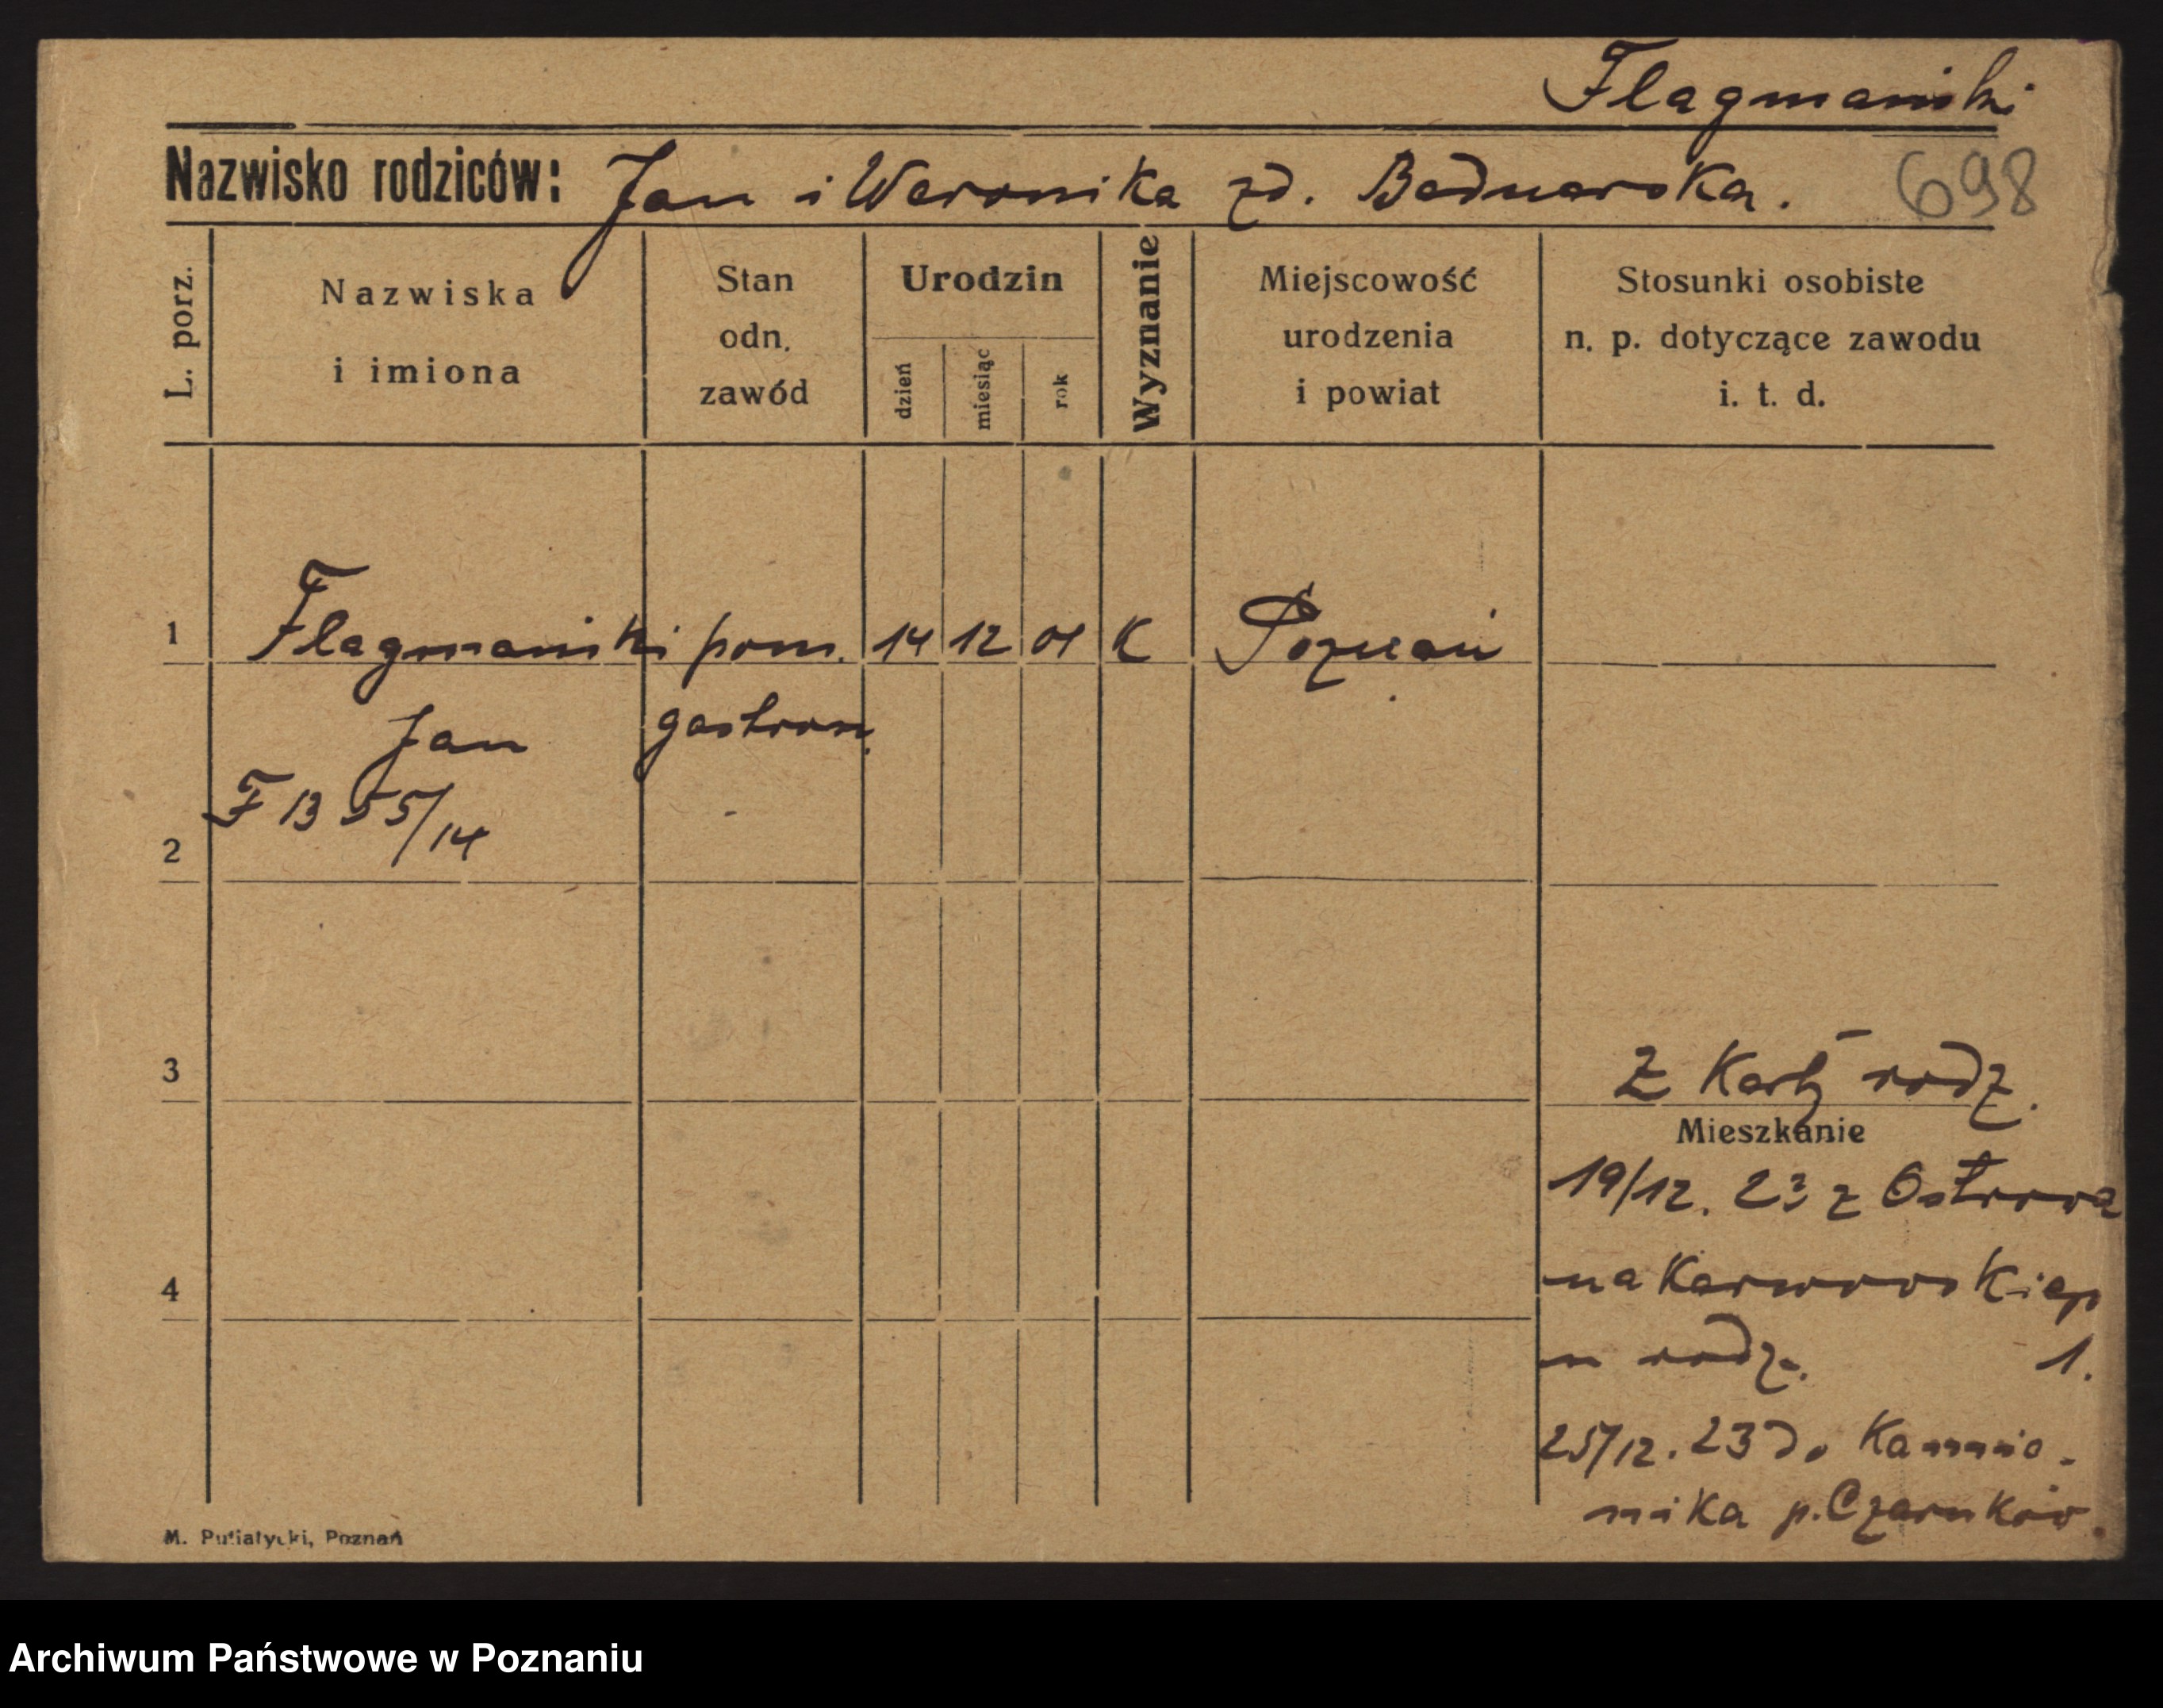 Flagmański
Nazwisko rodziców: Jan i Weronika zd. Bednarska. 698
L. porz.
Nazwiska
i imiona
Stan
odn.
zawód
Urodzin
dzień
miesiąc
rok
Wyznanie
Miejscowość
urodzenia
i powiat
Stosunki osobiste
n. p. dotyczące zawodu
i. t. d.
1 Flagmański pom. 14 12 04 K Poznań
Jan gastron.
F 13 55/14
2
3
Z Karty rodz.
Mieszkanie
19/12. 23 z Ostrowa
4
na
u rodz. 1.
25/12. 23 do Kamio-
nika p. Czarnków
M. Putiatycki, Poznań
Archiwum Państwowe w Poznaniu